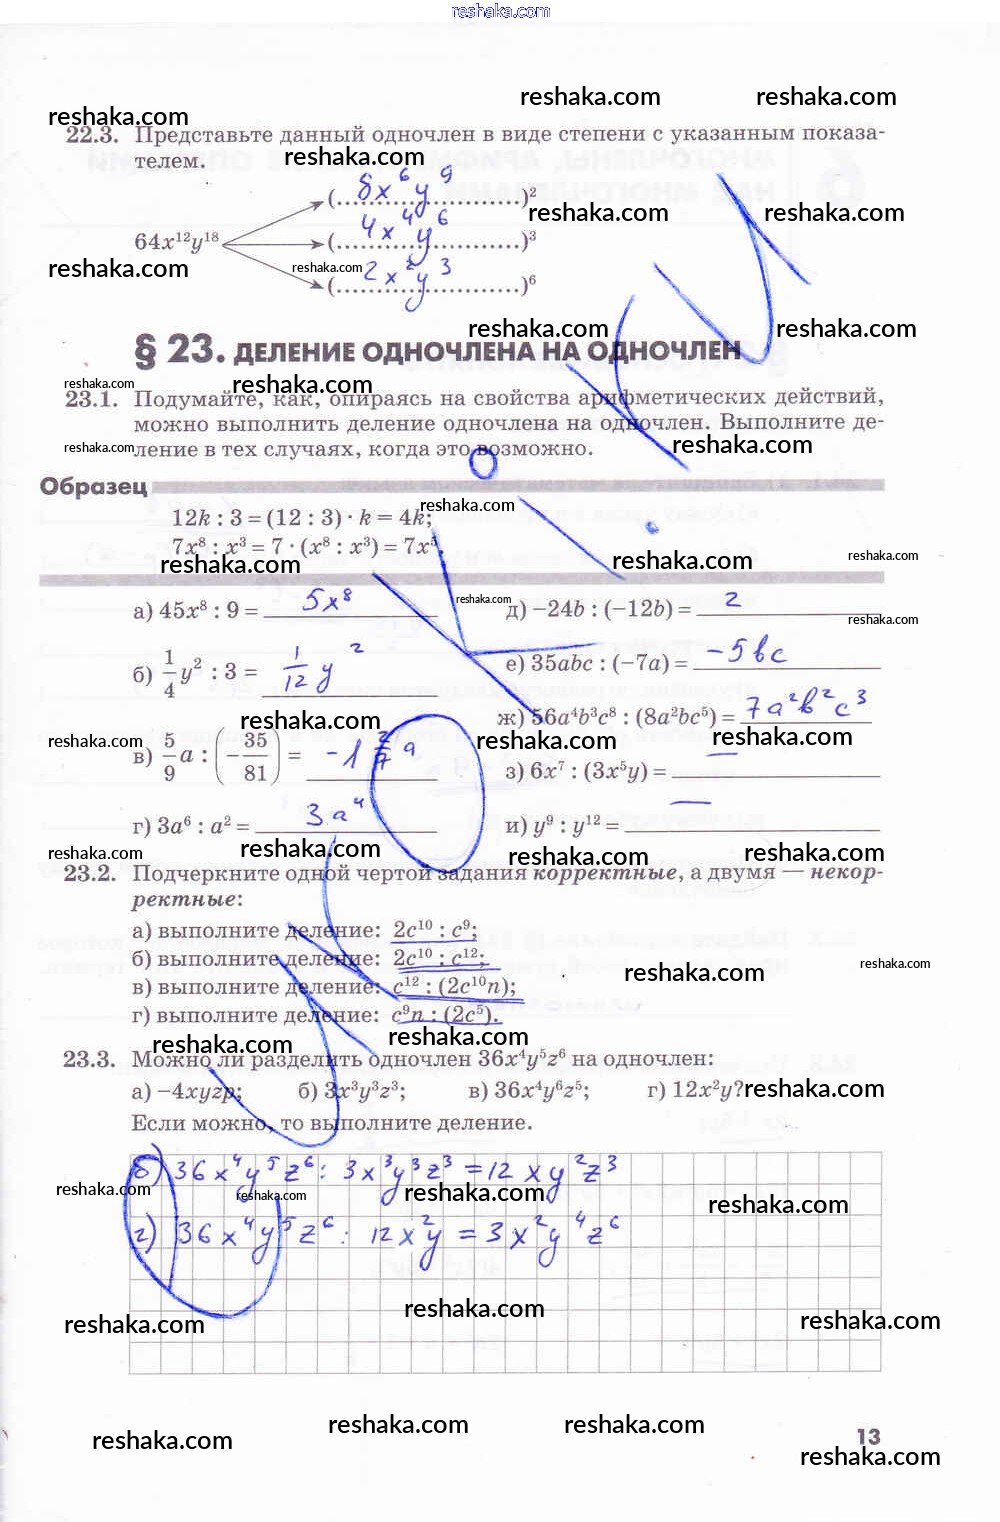 reshaka.com
reshaka.com reshaka.com
reshaka.com
22.3. Представьте данный одночлен в виде степени с указанным показа-
телем.
reshaka.com
(8x⁶y⁹)²
reshaka.com
64x¹²y¹⁸ (4x⁴y⁶)³
reshaka.com reshaka.com
(2x²y³)⁶
reshaka.com reshaka.com
§ 23. ДЕЛЕНИЕ ОДНОЧЛЕНА НА ОДНОЧЛЕН
reshaka.com reshaka.com
23.1. Подумайте, как, опираясь на свойства арифметических действий,
можно выполнить деление одночлена на одночлен. Выполните де-
reshaka.com reshaka.com
ление в тех случаях, когда это возможно.
Образец
reshaka.com
12k : 3 = (12 : 3) · k = 4k;
7x⁸ : x³ = 7 · (x⁸ : x³) = 7x⁵.
reshaka.com reshaka.com reshaka.com
а) 45x⁸ : 9 = 5x⁸ reshaka.com д) −24b : (−12b) = 2
reshaka.com
б) 1/4 y² : 3 = 1/12 y² е) 35abc : (−7a) = −5bc
reshaka.com ж) 56a⁴b³c⁸ : (8a²bc⁵) = 7a²b²c³
reshaka.com reshaka.com reshaka.com
в) 5/9 a : (−35/81) = −1 2/7 a з) 6x⁷ : (3x⁵y) = —
г) 3a⁶ : a² = 3a⁴ и) y⁹ : y¹² = —
reshaka.com reshaka.com reshaka.com reshaka.com
23.2. Подчеркните одной чертой задания корректные, а двумя — некор-
ректные:
а) выполните деление: 2c¹⁰ : c⁹;
б) выполните деление: 2c¹⁰ : c¹²;
reshaka.com reshaka.com
в) выполните деление: c¹² : (2c¹⁰n);
г) выполните деление: c⁹n : (2c⁵).
reshaka.com reshaka.com
23.3. Можно ли разделить одночлен 36x⁴y⁵z⁶ на одночлен:
а) −4xyzp; б) 3x³y³z³; в) 36x⁴y⁶z⁵; г) 12x²y?
reshaka.com
Если можно, то выполните деление.
б) 36x⁴y⁵z⁶ : 3x³y³z³ = 12xy²z³
reshaka.com reshaka.com reshaka.com reshaka.com
г) 36x⁴y⁵z⁶ : 12x²y = 3x²y⁴z⁶
reshaka.com
reshaka.com reshaka.com
reshaka.com reshaka.com
reshaka.com 13
reshaka.com